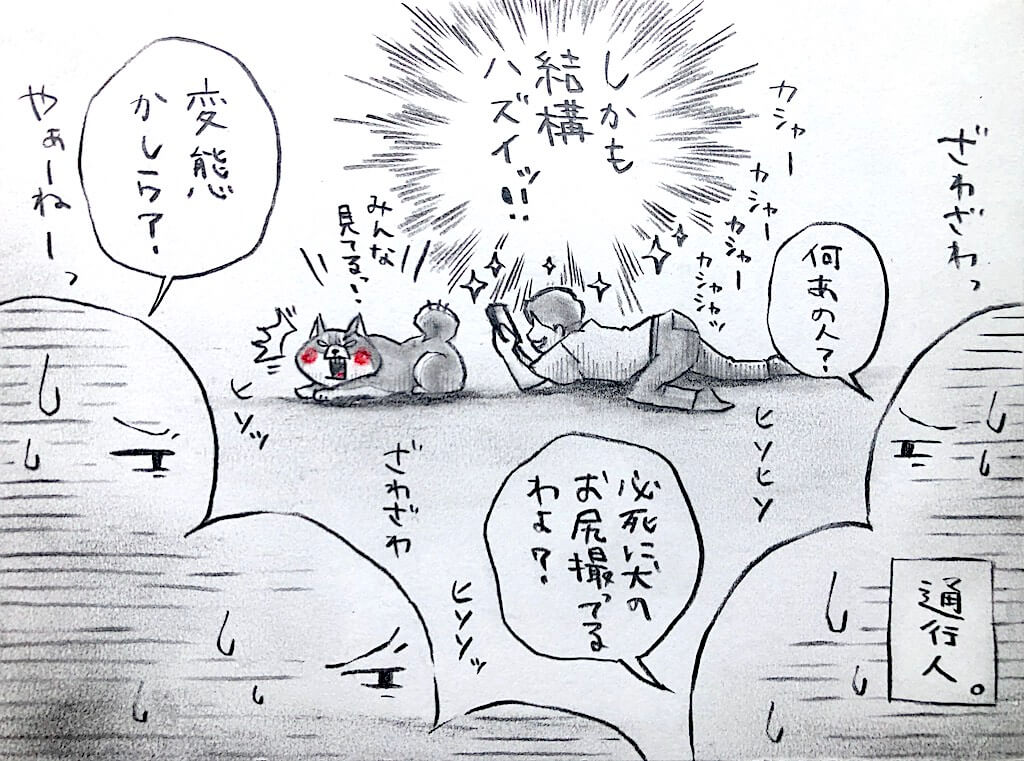 しかも
結構
ハズイッ!!
カシャー
カシャー
カシャー
カシャシャッ
ざわざわっ
何あの人?
みんな
見てるっ!!
変態
かしらァ?
やぁーねーっ
ヒソッ
ヒソヒソ
ざわざわ
必死に犬の
お尻撮ってる
わよ?
ヒソソッ
通行人。